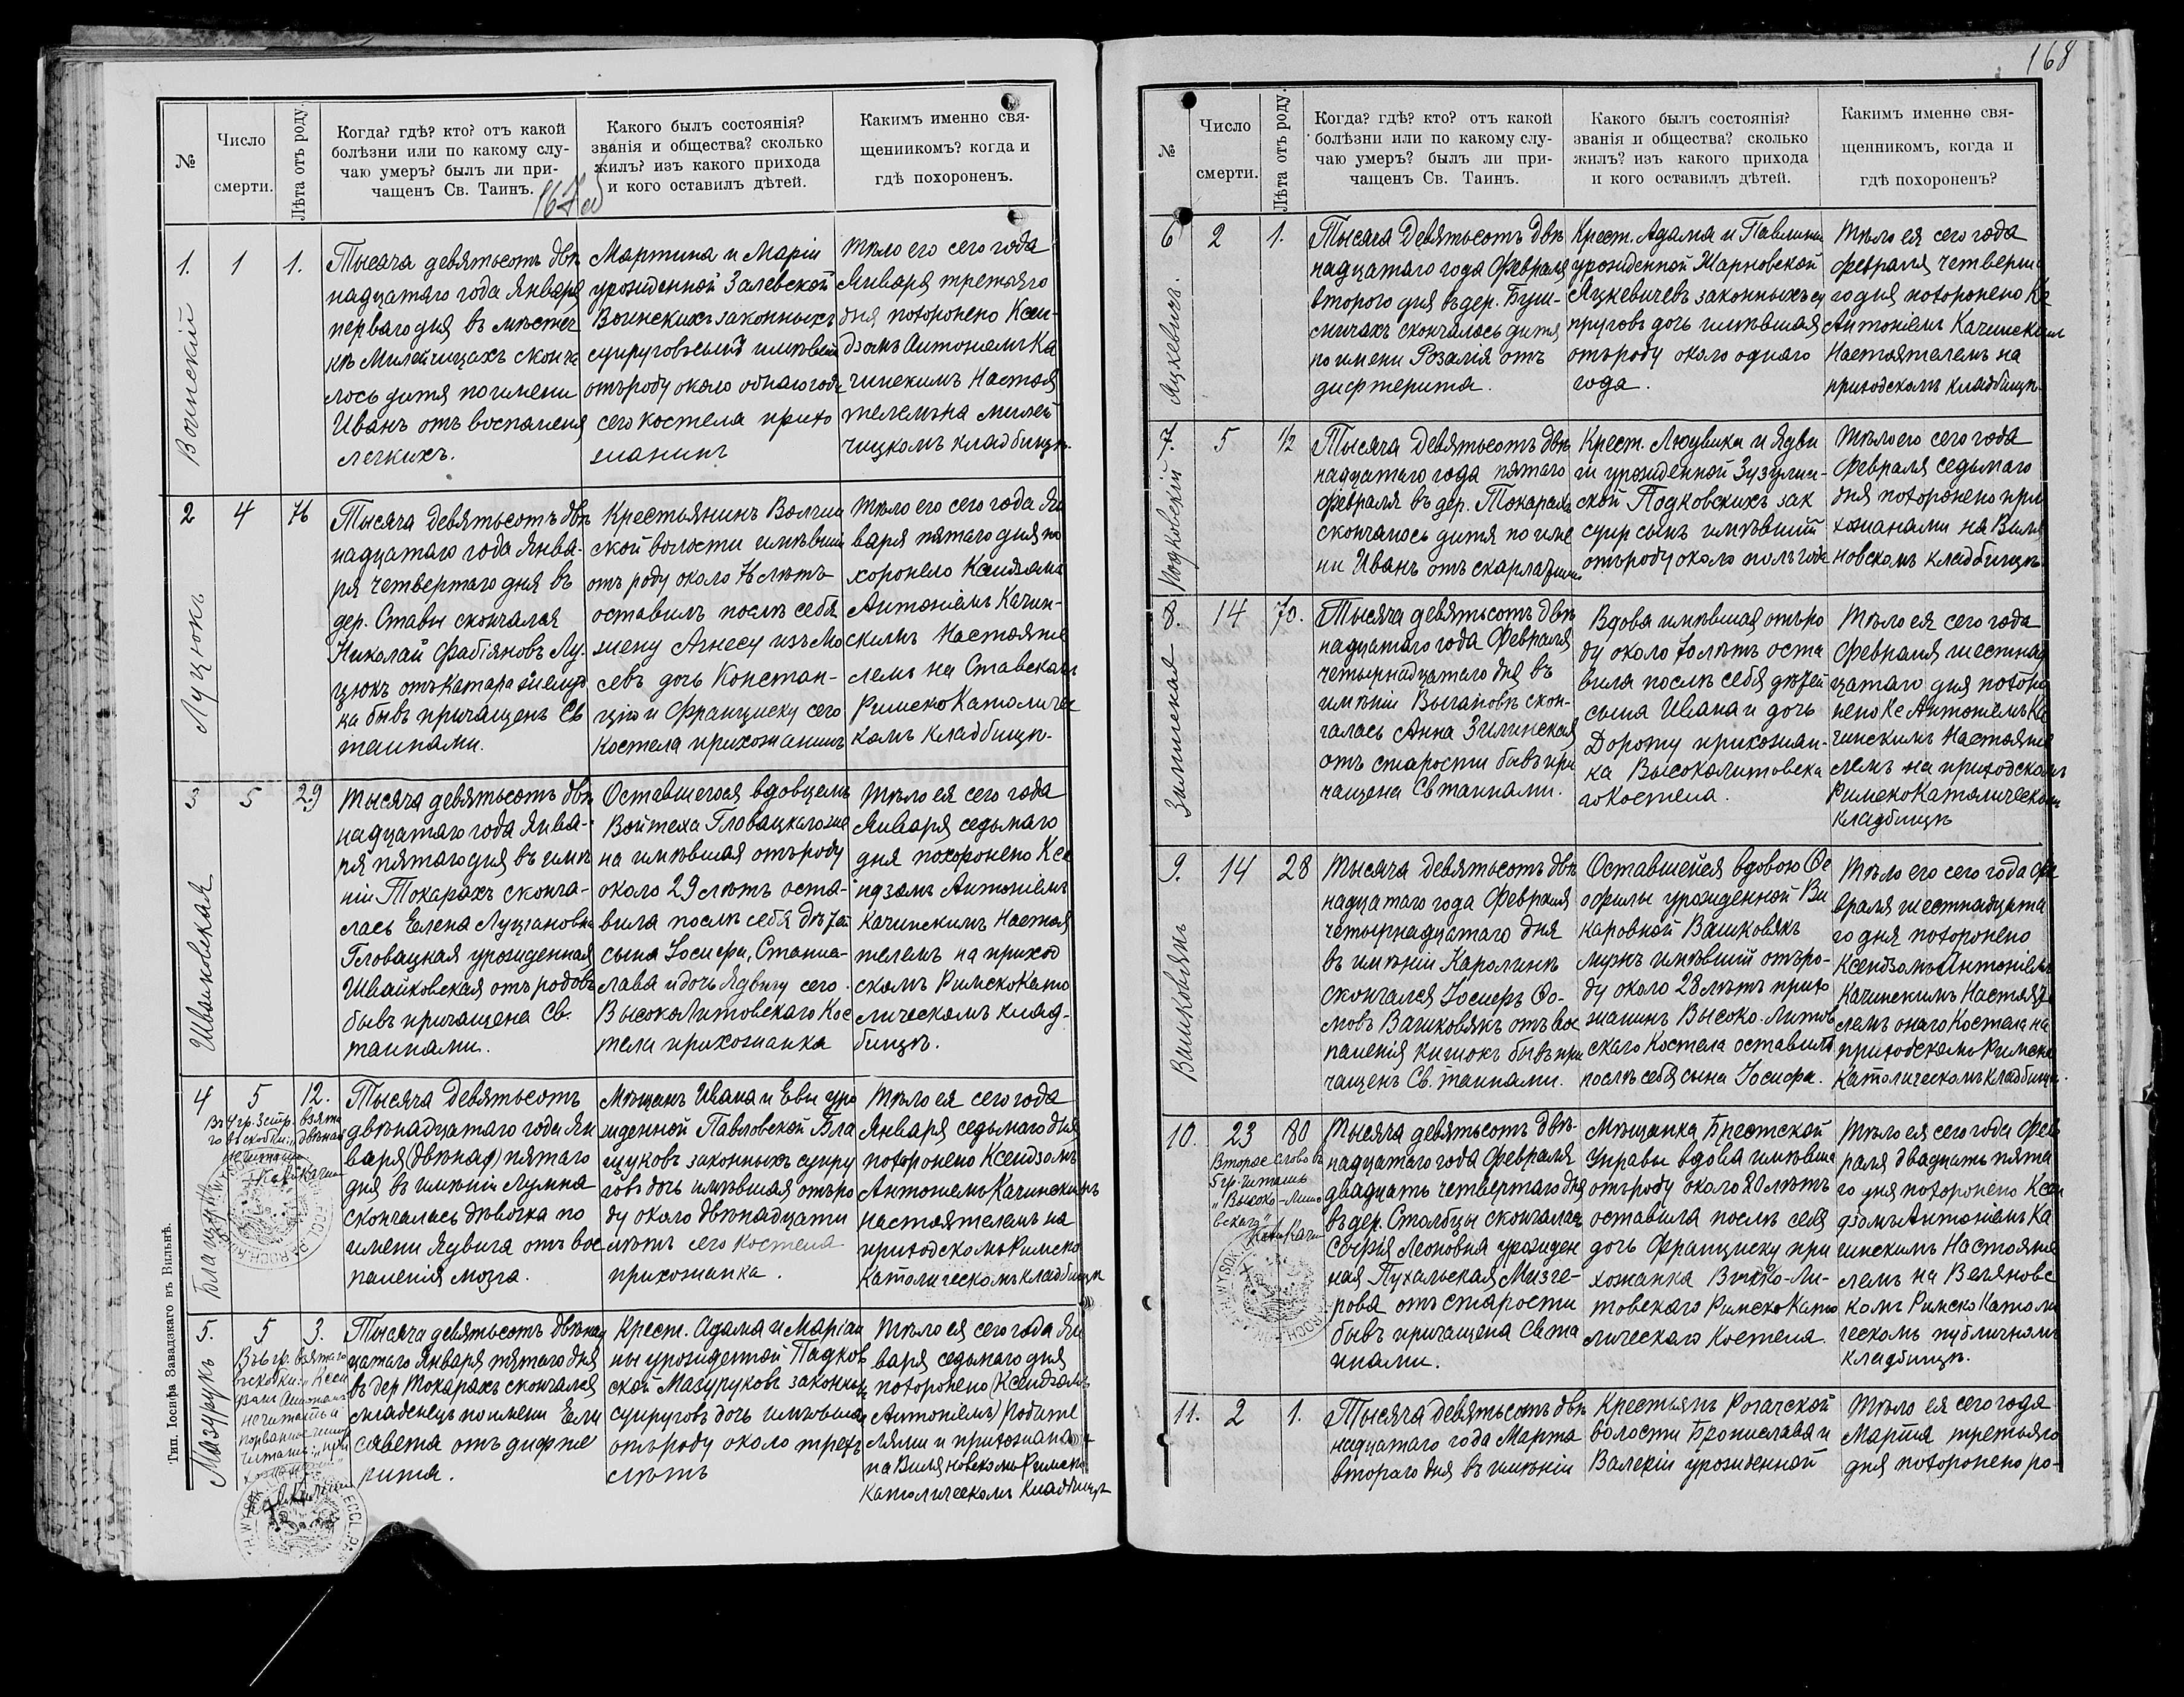 168
№
Число
смерти.
Лѣта отъ роду.
Когда? гдѣ? кто? отъ какой
болѣзни или по какому слу-
чаю умеръ? былъ ли при-
чащенъ Св. Таинъ.
Какого былъ состоянія?
званія и общества? сколько
жилъ? изъ какого прихода
и кого оставилъ дѣтей.
Какимъ именно свя-
щенникомъ? когда и
гдѣ похороненъ.
1.
1
1.
Воинскій
Тысяча девятьсотъ двѣ
надцатаго года Января
перваго дня въ мѣстеч
кѣ Милейчицахъ сконча
лось дитя по имени
Иванъ отъ воспаленія
легкихъ.
Мартина и Маріи
урожденной Залевской
Воинскихъ законныхъ
супруговъ сынъ имѣвшій
отъ роду около однаго года
сего костела прихо
жанинъ
Тѣло его сего года
Января третьяго
дня похоронено Ксен-
дзомъ Антоніемъ Ка
чинскимъ Настоя
телемъ на милей
чицкомъ кладбищѣ.
2
4
76
Луцюкъ
Тысяча девятьсотъ двѣ
надцатаго года Янва-
ря четвертаго дня въ
дер. Ставы скончался
Николай Фабіяновъ Лу-
цюкъ отъ катара желуд
ка бывъ причащенъ Св
таинами.
Крестьянинъ Волчин
ской волости имѣвшій
отъ роду около 76 лѣтъ
оставилъ послѣ себя
жену Агнесу изъ Мо
севъ дочь Констан-
цію и Франциску сего
Костела прихожанинъ
Тѣло его сего года Ян
варя пятаго дня по
хоронено Ксендзомъ
Антоніемъ Качин-
скимъ Настояте
лемъ на Ставскомъ
Римско Католичес
комъ кладбищѣ.
3
5
29
Швайковская
Тысяча девятьсотъ двѣ
надцатаго года Янва-
ря пятаго дня въ имѣ
ніи Токарахъ сконча-
лась Елена Луціановна
Гловацкая урожденная
Швайковская отъ родовъ
бывъ причащена Св.
таинами.
Оставшегося вдовцемъ
Войтеха Гловацкаго же
на имѣвшая отъ роду
около 29 лѣтъ оста-
вила послѣ себя дѣтей
сына Іосифа, Станис-
лава и дочь Ядвигу сего
Высоко Литовскаго Кос
тела прихожанка
Тѣло ея сего года
Января седьмаго
дня похоронено Ксе
ндзомъ Антоніемъ
Качинскимъ Настоя
телемъ на приход
скомъ Римско Като
лическомъ клад-
бищѣ.
4
5
12.
Въ 4 гр. 3 стр. взято
го въ скобки: „двѣнад
не читать
Кс. Ав. Качин
Тысяча девятьсотъ
двѣнадцатаго года Ян
варя (двѣнад) пятаго
дня въ имѣніи Лумна
скончалась дѣвочка по
имени Ядвига отъ вос
паленія мозга.
Мѣщанъ Ивана и Евы уро
жденной Павловской Бла
щуковъ законныхъ супру
говъ дочь имѣвшая отъ ро
ду около двѣнадцати
лѣтъ сего костела
прихожанка.
Тѣло ея сего года
Января седьмаго дня
похоронено Ксендзомъ
Антоніемъ Качинскимъ
настоятелемъ на
приходскомъ Римско
Католическомъ кладбищѣ
5.
5
3.
Мазурукъ
Въ 6 гр. взятаго
въ скобки: „Ксен
дзомъ Антоніемъ
не читать а
читать: „при
хожанами"
Тысяча девятьсотъ двѣнад
цатаго Января пятаго дня
въ дер Токарахъ скончался
младенецъ по имени Ели
савета отъ дифте
рита.
Крест. Адама и Маріан
ны урожденной Падков
ской Мазуруковъ законныхъ
супруговъ дочь имѣвшая
отъ роду около трехъ
лѣтъ
Тѣло ея сего года Ян
варя седьмаго дня
похоронено (Ксендзомъ
Антоніемъ) Родите
лями и прихожана
на Виляновскомъ Римско
Католическомъ Кладбищѣ
Тип. Іосифа Завадзкаго въ Вильнѣ.
№
Число
смерти.
Лѣта отъ роду.
Когда? гдѣ? кто? отъ какой
болѣзни или по какому слу-
чаю умеръ? былъ ли при-
чащенъ Св. Таинъ.
Какого былъ состоянія?
званія и общества? сколько
жилъ? изъ какого прихода
и кого оставилъ дѣтей.
Какимъ именно свя-
щенникомъ, когда и
гдѣ похороненъ?
6
2
1.
Яцкевичъ.
Тысяча Девятьсотъ двѣ
надцатаго года Февраля
второго дня въ дер. Буш-
сничахъ скончалось дитя
по имени Розалія отъ
дифтерита.
Крест. Адама и Павлины
урожденной Жарновской
Яцкевичевъ законныхъ су
пруговъ дочь имѣвшая
отъ роду около однаго
года.
Тѣло ея сего года
Февраля четверта
го дня похоронено Кс
Антоніемъ Качинским
Настоятелемъ на
приходскомъ кладбищѣ
7
5
1/2
Подковскій
Тысяча Девятьсотъ двѣ
надцатаго года пятаго
февраля въ дер. Токарахъ
скончалось дитя по име
ни Иванъ отъ скарлатины
Крест. Людвика и Ядви
ги урожденной Зузулин-
ской Подковскихъ зак
супр сынъ имѣвшій
отъ роду около полъ года
Тѣло его сего года
Февраля седьмаго
дня похоронено при
хожанами на Виля
новскомъ кладбищѣ
8.
14
70.
Зилинская
Тысяча девятьсотъ двѣ
надцатаго года Февраля
четырнадцатаго дня въ
имѣніи Выгановѣ скон-
чалась Анна Зилинская
отъ старости бывъ при
чащена Св таинами.
Вдова имѣвшая отъ ро
ду около 70 лѣтъ оста
вила послѣ себя дѣтей
сына Ивана и дочь
Дороту прихожан-
ка Высоколитовска
го костела.
Тѣло ея сего года
Февраля шестнад
цатаго дня похоро
нено Кс Антоніемъ Ка
чинскимъ Настояте
лемъ на приходскомъ
Римско Католическомъ
кладбищѣ
9.
14
28
Вашковякъ
Тысяча девятьсотъ двѣ
надцатаго года Февраля
четырнадцатаго дня
въ имѣніи Каролинѣ
скончался Іосифъ Ѳо-
мовъ Вашковякъ отъ вос
паленія кишокъ бывъ при
чащенъ Св. таинами.
Оставшейся вдовою Ѳе
офилы урожденной Ви
каровной Вашковякъ
мужъ имѣвшій отъ ро-
ду около 28 лѣтъ прихо
жанинъ Высоко-Литов
скаго Костела оставилъ
послѣ себя сына Іосифа.
Тѣло его сего года фе
враля шестнадцата
го дня похоронено
Ксендзомъ Антоніемъ
Качинскимъ Настояте
лемъ онаго Костела на
приходскомъ Римско
Католическомъ кладбищѣ.
10.
23
80
Второе слово въ
5 гр. читать
„Высоко-Лито
вскаго"
Тысяча девятьсотъ двѣ-
надцатаго года Февраля
двадцать четвертаго дня
въ дер. Столбцы скончалась
Софія Леоновна урожден
ная Пухальская Мизге-
рова отъ старости
бывъ причащена Св та
инами.
Мѣщанка Брестской
Управы вдова имѣвша
отъ роду около 80 лѣтъ
оставила послѣ себя
дочь Франциску при
хожанка Высоко-Ли-
товскаго Римско Като
лическаго Костела.
Тѣло ея сего года Фев
раля двадцать пята
го дня похоронено Ксен
дзомъ Антоніемъ Ка
чинскимъ Настояте
лемъ на Веляновс
комъ Римско Католи
ческомъ публичномъ
кладбищѣ.
11.
2
1.
Тысяча девятьсотъ двѣ
надцатаго года Марта
втораго дня въ имѣніи
Крестьянъ Рогачской
волости Бронислава и
Валеріи урожденной
Тѣло ея сего года
Марта третьяго
дня похоронено ро-